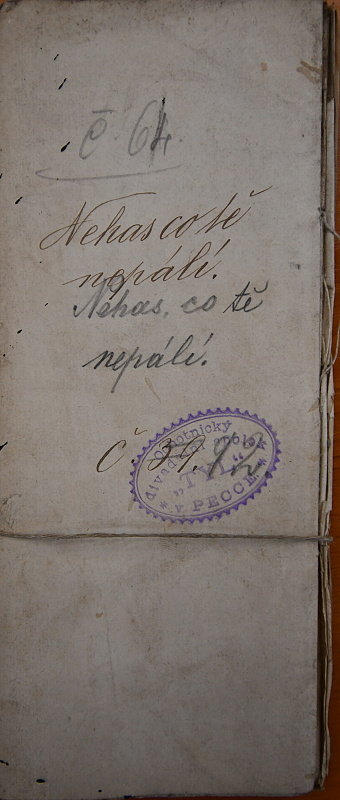 č. 64.
Nehas co tě
nepálí.
Nehas, co tě
nepálí.
č. 39.
Ochotnický
divadelní spolek
"TYL"
v PECCE